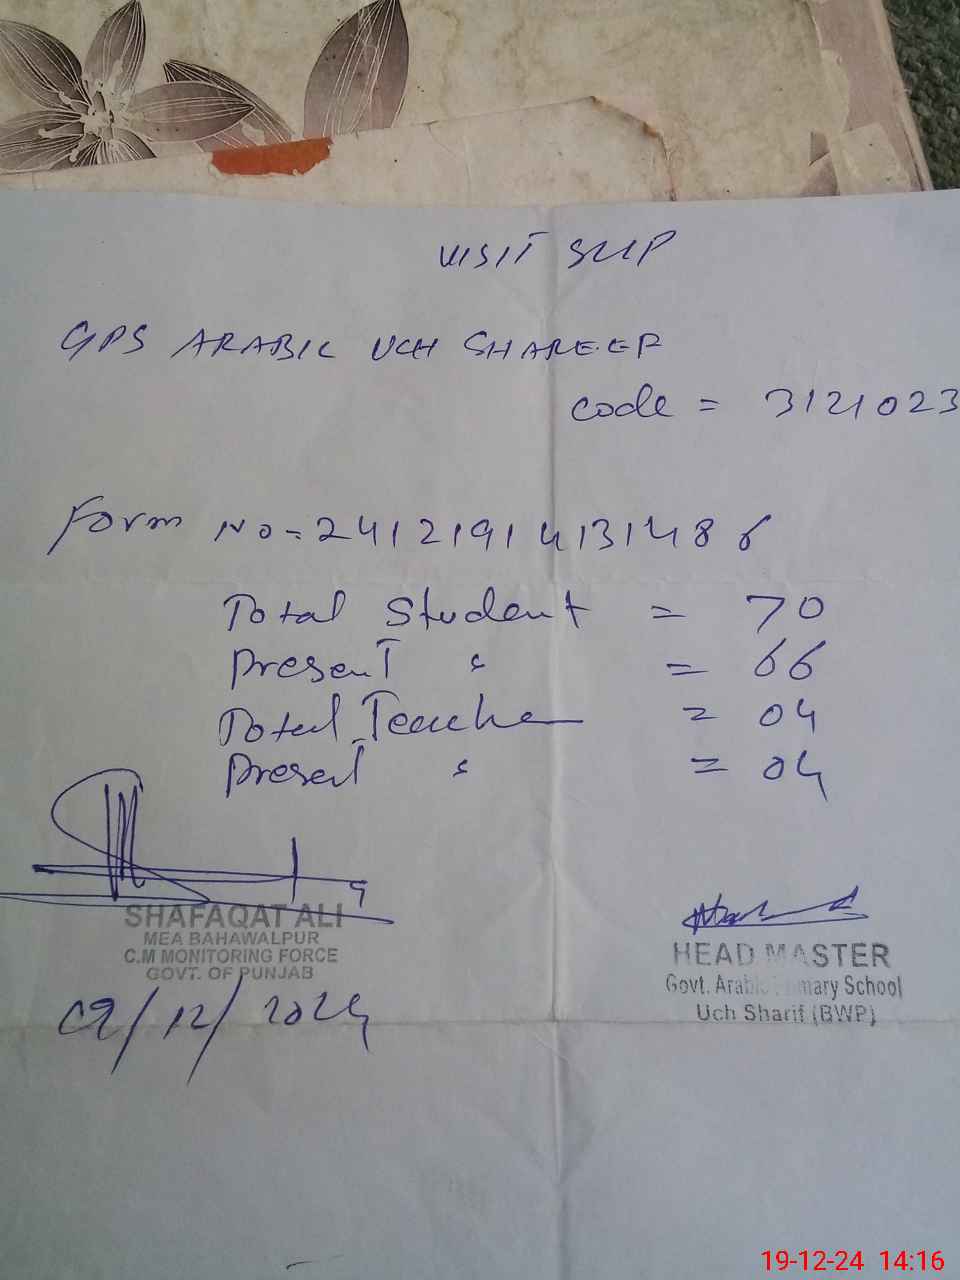 VISIT SLIP
GPS ARABIC UCH SHAREEF
Code = 3121023
Form No = 24121914131486
Total Student = 70
Present " = 66
Total Teacher = 04
Present " = 04
SHAFAQAT ALI
MEA BAHAWALPUR
C.M MONITORING FORCE
GOVT. OF PUNJAB
/12/2024
HEAD MASTER
Govt. Arabic Primary School
Uch Sharif (BWP)
19-12-24 14:16